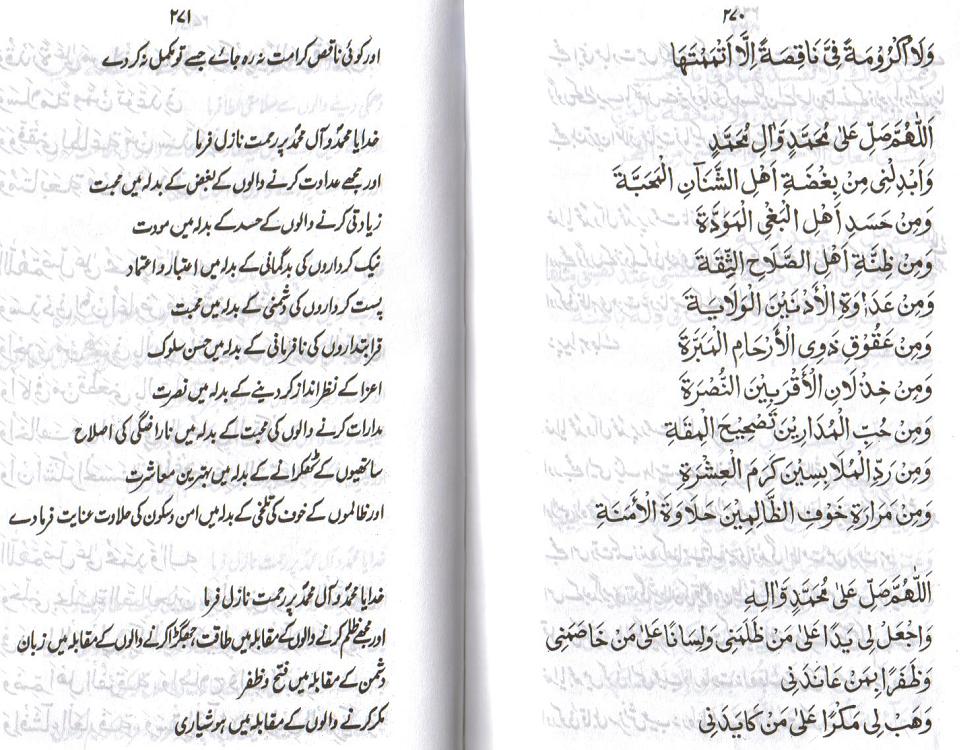 ۲۷۰
وَلَا أُكْرُومَةً فِيَّ نَاقِصَةً إِلَّا أَتْمَمْتَهَا
اَللّٰهُمَّ صَلِّ عَلىٰ مُحَمَّدٍ وَّاٰلِ مُحَمَّدٍ
وَأَبْدِلْنِي مِنْ بِغْضَةِ أَهْلِ الشَّنَاٰنِ الْمَحَبَّةَ
وَمِنْ حَسَدِ أَهْلِ الْبَغْيِ الْمَوَدَّةَ
وَمِنْ ظِنَّةِ أَهْلِ الصَّلَاحِ الثِّقَةَ
وَمِنْ عَدَاوَةِ الْأَدْنَيْنَ الْوَلَايَةَ
وَمِنْ عُقُوْقِ ذَوِي الْأَرْحَامِ الْمَبَرَّةَ
وَمِنْ خِذْلَانِ الْأَقْرَبِيْنَ النُّصْرَةَ
وَمِنْ حُبِّ الْمُدَارِيْنَ تَصْحِيْحَ الْمِقَةِ
وَمِنْ رَدِّ الْمُلَابِسِيْنَ كَرَمَ الْعِشْرَةِ
وَمِنْ مَرَارَةِ خَوْفِ الظَّالِمِيْنَ حَلَاوَةَ الْأَمَنَةِ
اَللّٰهُمَّ صَلِّ عَلىٰ مُحَمَّدٍ وَّاٰلِهِ
وَاجْعَلْ لِي يَدًا عَلىٰ مَنْ ظَلَمَنِي وَلِسَانًا عَلىٰ مَنْ خَاصَمَنِي
وَظَفَرًا بِمَنْ عَانَدَنِي
وَهَبْ لِي مَكْرًا عَلىٰ مَنْ كَايَدَنِي
۲۷۱
اور کوئی ناقص کرامت نہ رہ جائے جسے تو مکمل نہ کر دے
خدایا محمدؐ و آل محمدؐ پر رحمت نازل فرما
اور مجھے عداوت کرنے والوں کے بغض کے بدلہ میں محبت
زیادتی کرنے والوں کے حسد کے بدلہ میں مودت
نیک کرداروں کی بدگمانی کے بدلہ میں اعتبار و اعتماد
پست کرداروں کی دشمنی کے بدلہ میں محبت
قرابتداروں کی نافرمانی کے بدلہ میں حسن سلوک
اعزا کے نظر انداز کر دینے کے بدلہ میں نصرت
مدارات کرنے والوں کی محبت کے بدلہ میں ناراضگی کی اصلاح
ساتھیوں کے ٹھکرانے کے بدلہ میں بہترین معاشرت
اور ظالموں کے خوف کی تلخی کے بدلہ میں امن و سکون کی حلاوت عنایت فرما دے
خدایا محمدؐ و آل محمدؐ پر رحمت نازل فرما
اور مجھے ظلم کرنے والوں کے مقابلہ میں طاقت، جھگڑا کرنے والوں کے مقابلہ میں زبان
دشمن کے مقابلہ میں فتح و ظفر
مکر کرنے والوں کے مقابلہ میں ہوشیاری